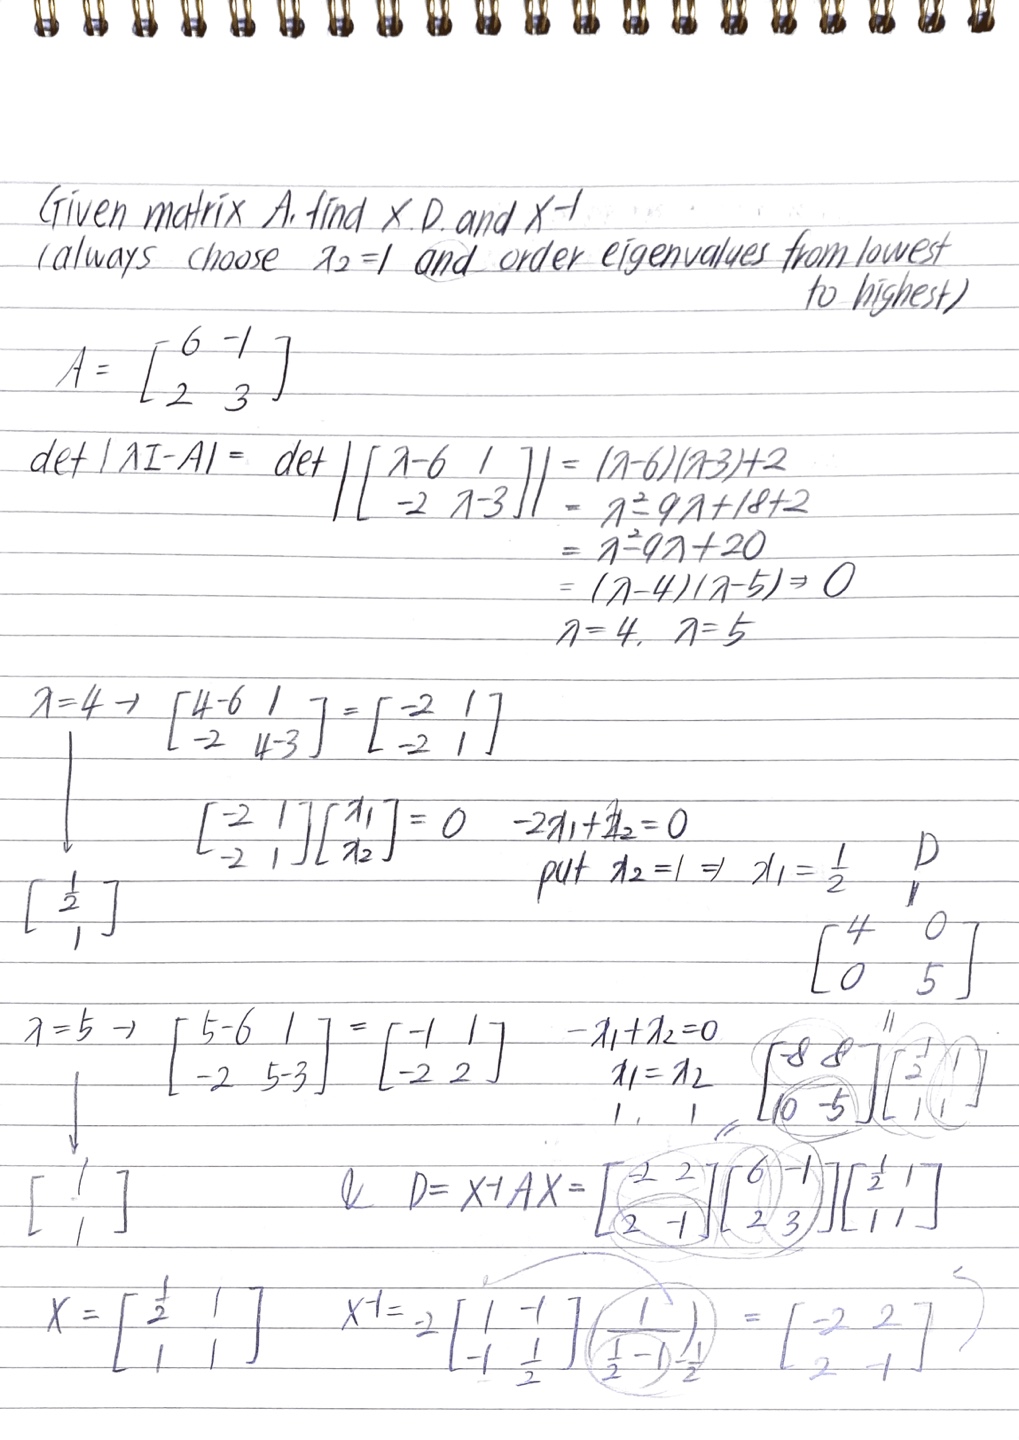 Given matrix A. find X. D. and X-1
(always choose x2=1 and order eigenvalues from lowest
to highest)
A = [6 -1
2 3]
det |λI-A| = det |[λ-6 1
-2 λ-3]| = (λ-6)(λ-3)+2
= λ²-9λ+18+2
= λ²-9λ+20
= (λ-4)(λ-5) ⇒ 0
λ=4. λ=5
λ=4 → [4-6 1
-2 4-3] = [-2 1
-2 1]
[-2 1
-2 1] [x1
x2] = 0 -2x1+x2=0
put x2=1 ⇒ x1 = 1/2
[1/2
1]
D
=
[4 0
0 5]
λ=5 → [5-6 1
-2 5-3] = [-1 1
-2 2] -x1+x2=0
x1=x2
1, 1
=
[-8 8
10 -5] [1/2 1
1 1]
=
[1
1]
& D= X-1 A X = [-2 2
2 -1] [6 -1
2 3] [1/2 1
1 1]
X = [1/2 1
1 1]
X-1 = -2 [1 -1
-1 1/2] (1/(1/2-1)) -1/2 = [-2 2
2 -1]